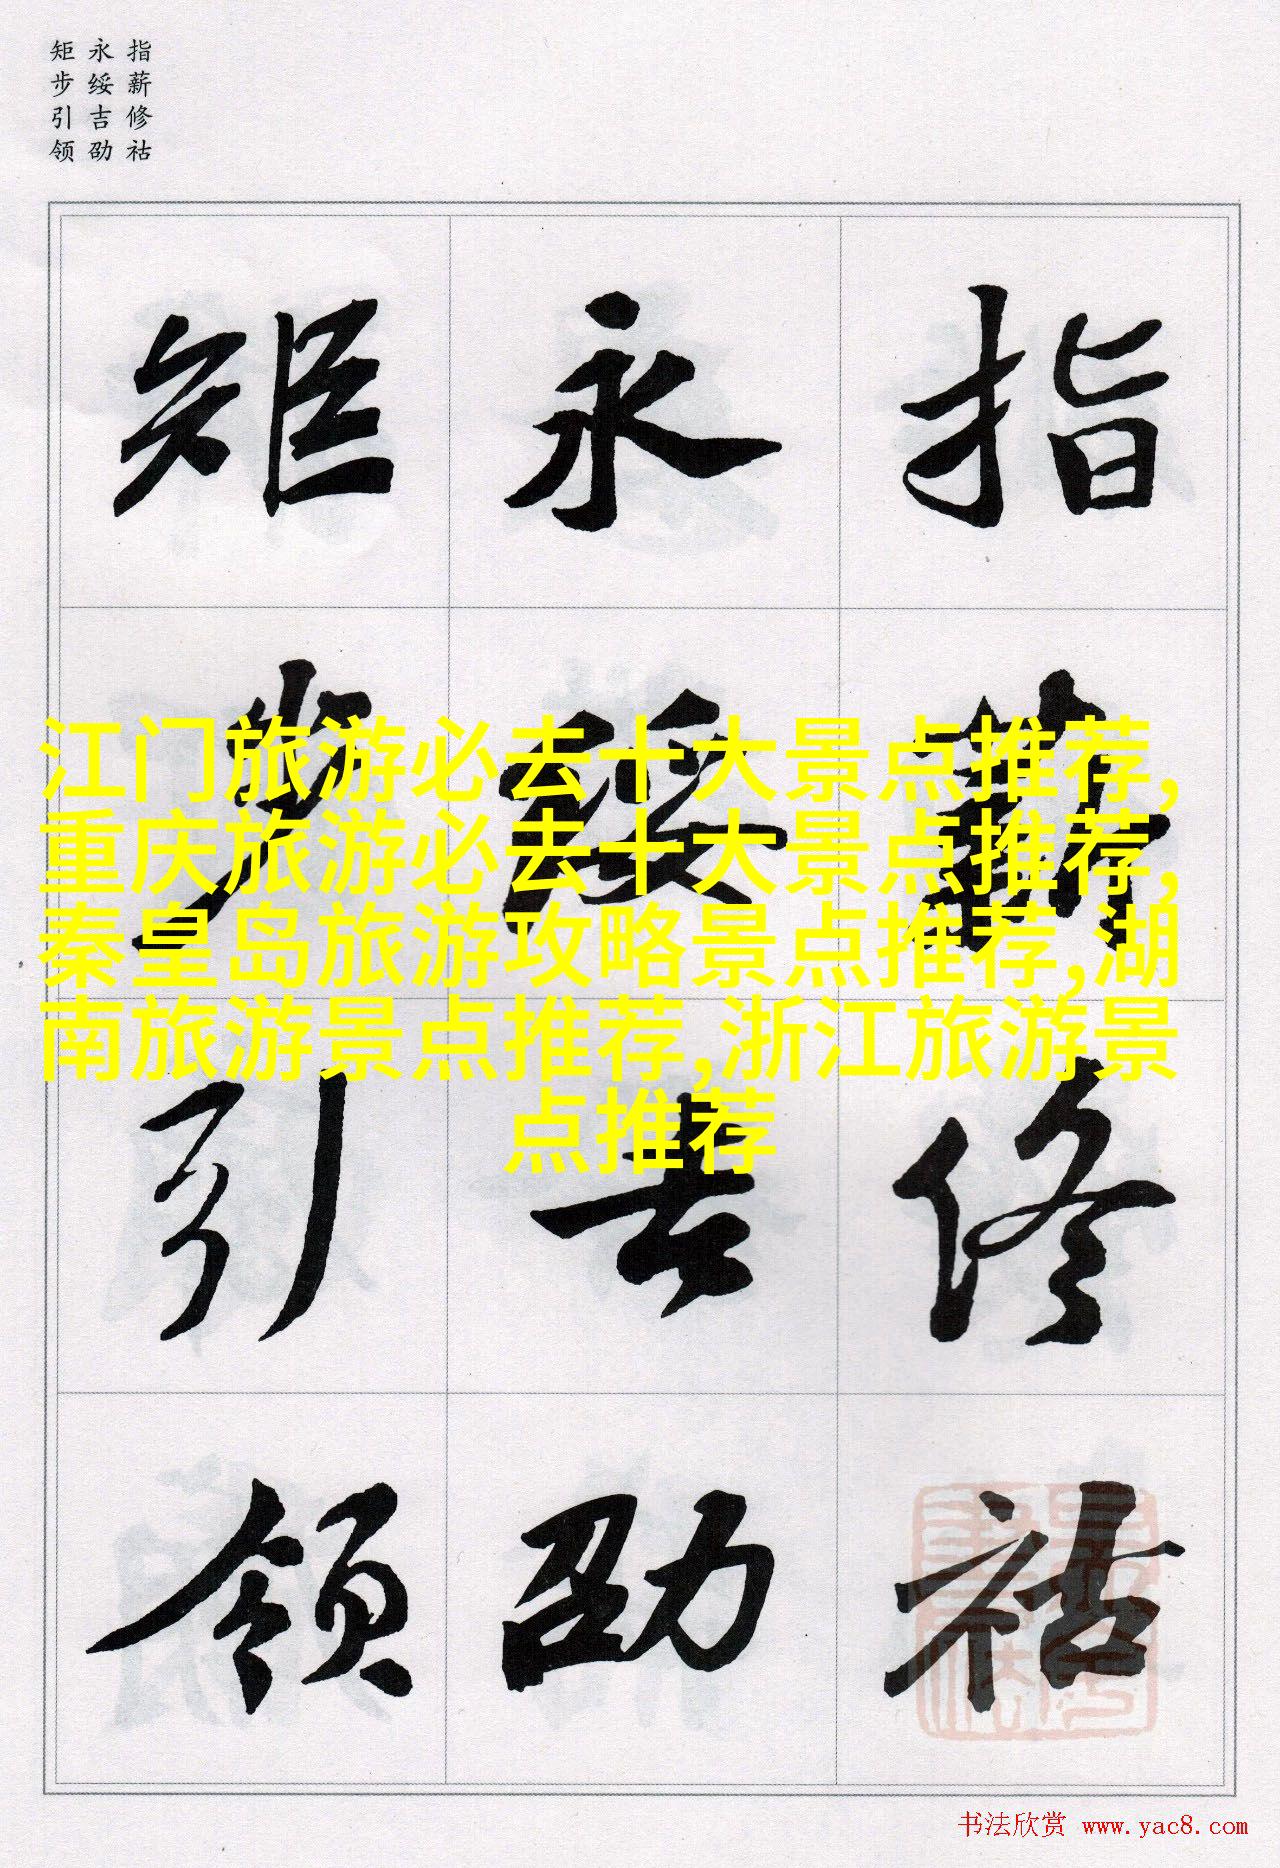 指薪修祜
永绥吉劭
矩步引领
指薪修祜
永绥吉劭
矩步引领
江门旅游必去十大景点推荐,
重庆旅游必去十大景点推荐,
秦皇岛旅游攻略景点推荐,湖
南旅游景点推荐,浙江旅游景
点推荐
书法欣赏 www.yac8.com